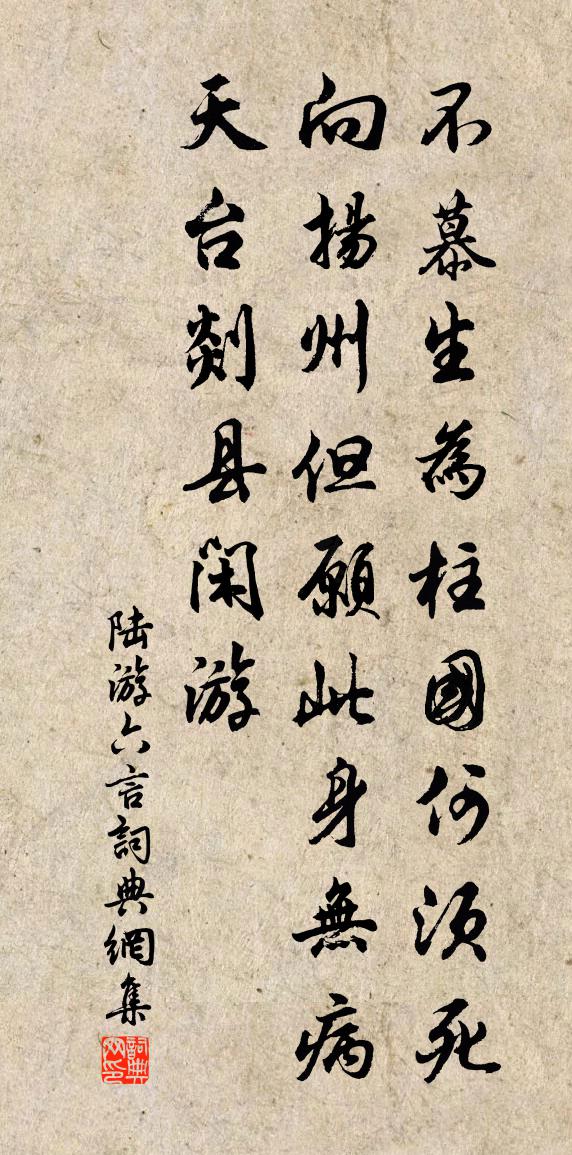 不慕生為柱國何須死
向揚州但願此身無病
天台剡县閑游
陆游六言詞典網集
詞典网印